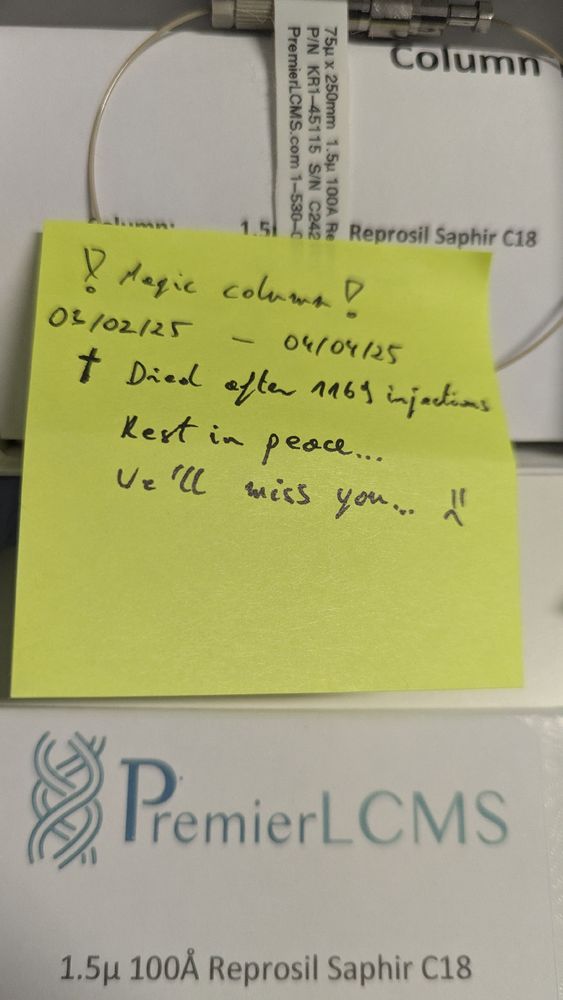 Column
75µ x 250mm 1.5µ 100A Re
P/N KR1-45115 S/N C242
PremierLCMS.com 1-530-
Column: 1.5µ Reprosil Saphir C18
! Magic column!
03/02/25 - 04/04/25
† Died after 1169 injections
Rest in peace...
We'll miss you...
PremierLCMS
1.5µ 100Å Reprosil Saphir C18